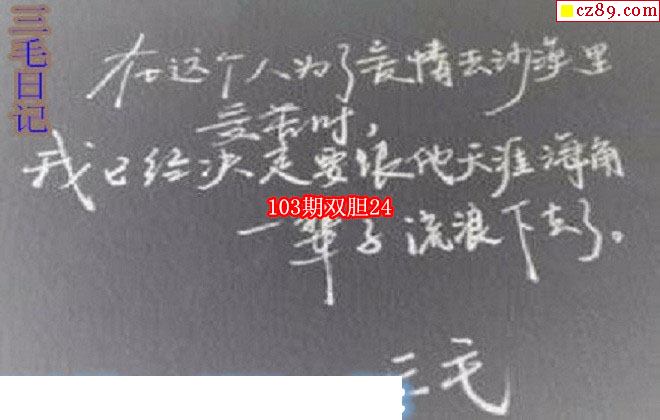 cz89.com
三毛日记
在这个人为了爱情去沙漠里
受苦时,
我已经决定要跟他天涯海角
103期双胆24
一辈子流浪下去了。
三毛